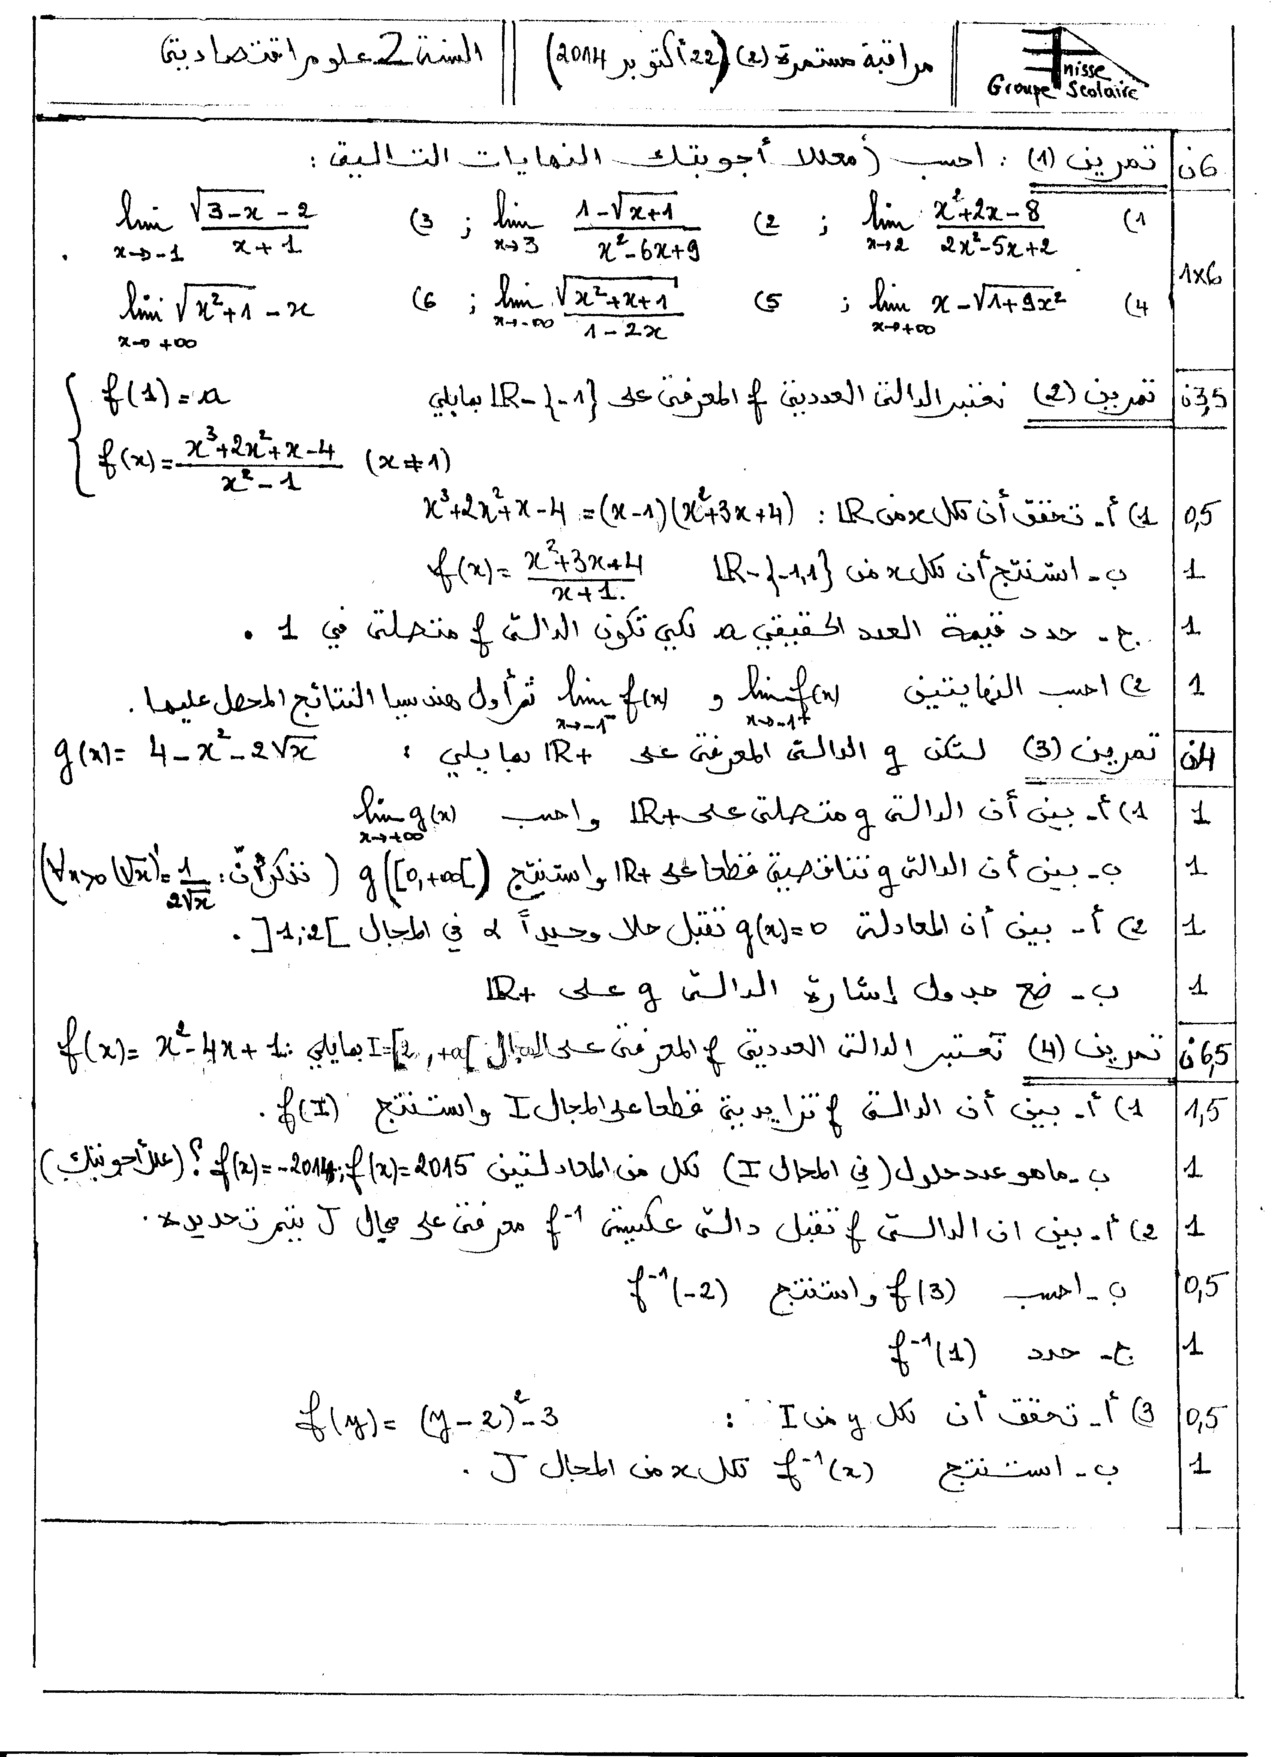 السنة 2 علوم اقتصادية
مراقبة مستمرة (2) (22 أكتوبر 2014)
Groupe Scolaire nisse
6ن تمرين (1) : احسب (معللا أجوبتك النهايات التالية :
1×6
1) lim x→2 (x²+2x-8)/(2x²-5x+2) ; 2) lim x→3 (1-√(x+1))/(x²-6x+9) ; 3) lim x→-1 (√(3-x) - 2)/(x+1) .
4) lim x→+∞ x-√(1+9x²) ; 5) lim x→-∞ √(x²+x+1)/(1-2x) ; 6) lim x→+∞ √(x²+1) - x
3,5ن تمرين (2) نعتبر الدالة العددية f المعرفة على IR-{-1} بمايلي { f(1) = a
f(x) = (x³+2x²+x-4)/(x²-1) (x≠1)
0,5 1) أ- تحقق أن لكل x من IR : x³+2x²+x-4 = (x-1)(x²+3x+4)
1 ب- استنتج أن لكل x من IR-{-1,1} f(x) = (x²+3x+4)/(x+1).
1 ج- حدد قيمة العدد الحقيقي a لكي تكون الدالة f متصلة في 1 .
1 2) احسب النهايتين lim x→-1+ f(x) و lim x→-1- f(x) ثم أول هندسيا النتائج المحصل عليها .
4ن تمرين (3) لتكن g الدالة المعرفة على IR+ بمايلي : g(x) = 4-x²-2√x
1 1) أ- بين أن الدالة g متصلة على IR+ واحسب lim x→+∞ g(x)
1 ب- بين أن الدالة g تناقصية قطعا على IR+ واستنتج g([0,+∞[) (نذكر أن : ∀x>0 (√x)'=1/(2√x))
1 2) أ- بين أن المعادلة g(x)=0 تقبل حلا وحيداً α في المجال ]1;2[ .
1 ب- ضع جدول إشارة الدالة g على IR+
6,5ن تمرين (4) نعتبر الدالة العددية f المعرفة على المجال I=[2,+∞[ بمايلي : f(x) = x²-4x+1
1,5 1) أ- بين أن الدالة f تزايدية قطعا على المجال I واستنتج f(I) .
1 ب- ماهو عدد حلول (في المجال I) لكل من المعادلتين f(x)=2015 ; f(x)=-2014 ؟ (علل أجوبتك)
1 2) أ- بين ان الدالة f تقبل دالة عكسية f⁻¹ معرفة على مجال J يتم تحديده .
0,5 ب- احسب f(3) واستنتج f⁻¹(-2)
1 ج- حدد f⁻¹(1)
0,5 3) أ- تحقق أن لكل y من I : f(y) = (y-2)²-3
1 ب- استنتج f⁻¹(x) لكل x من المجال J .